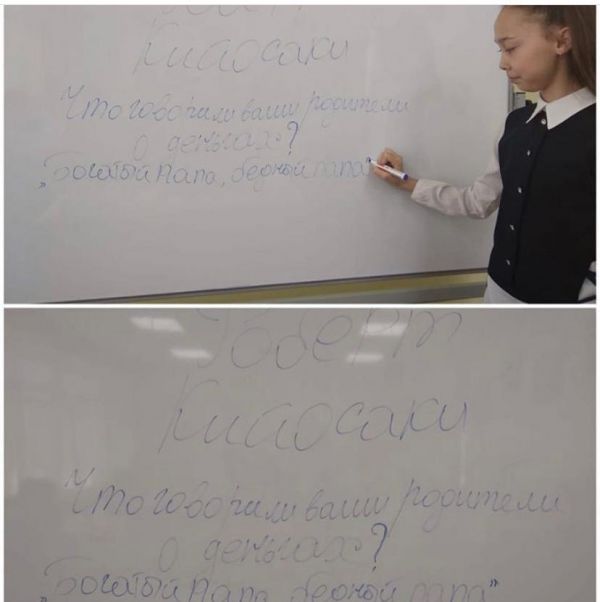 Роберт
Кийосаки
"Что говорили ваши родители
о деньгах?
"Богатый папа, бедный папа"
Роберт
Кийосаки
"Что говорили ваши родители
о деньгах?
"Богатый папа, бедный папа"